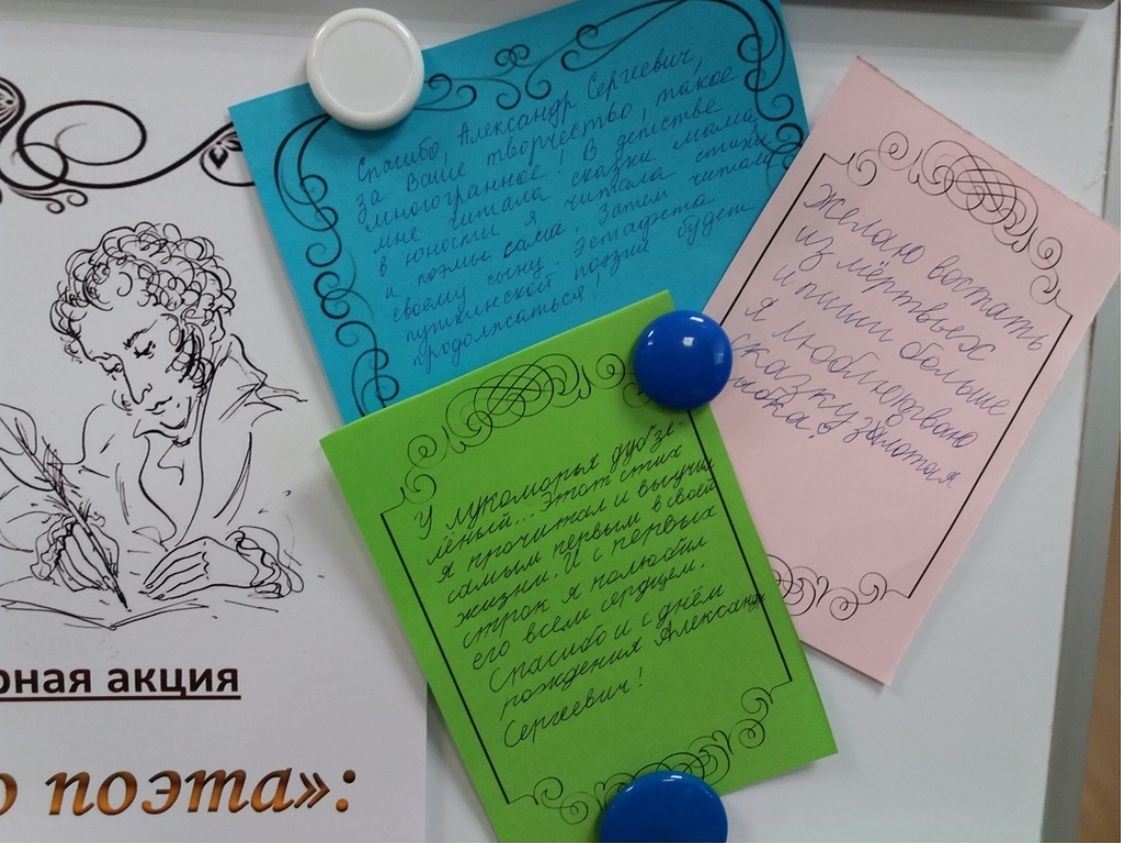 Спасибо, Александр Сергеевич,
за Ваше творчество, такое
многогранное! В детстве
мне читала сказки мама,
в юности я читала стихи
и поэмы сама. Затем читала
своему сыну. Эстафета
пушкинской поэзии будет
продолжаться!
Желаю востать
из мёртвьех
и пиши больше
я люблю
сказку золотая
рыбка.
У лукоморья дуб зе-
лёный... Этот стих
я прочитал и выучил
самым первым в своей
жизни. И с первых
строк я полюбил
его всем сердцем.
Спасибо и с днём
рождения Александр
Сергеевич!
рная акция
о поэта»: